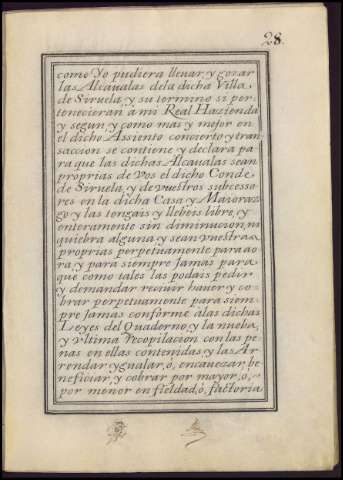 28.
como Yo pudiera lleuar, y gozar
las Alcaualas dela dicha Villa,
de Siruela, y su termino si per
tenecieran a mi Real Hazienda
y segun, y como mas y mejor en
el dicho Assiento concierto, y tran
saccion se contiene y declara pa
ra que las dichas Alcaualas sean
proprias de vos el dicho Conde
de Siruela, y de vuestros subcesso
res en la dicha Casa y Maioraz
go, y las tengais y lleueis libre, y
enteramente sin diminucion, ni
quiebra alguna, y sean vuestras
proprias perpetuamente para ao
ra, y para siempre Jamas para
que como tales las podais pedir
y demandar reciuir hauer y co
brar perpetuamente para siem
pre Jamas conforme âlas dichas
Leyes del Quaderno, y la nueba,
y vltima recopilacion con las pe
nas en ellas contenidas, y las Ar
rendar ygualar, ô, encauezar, be
neficiar, y cobrar por mayor, ô,
por menor en fieldad, ô, factoria